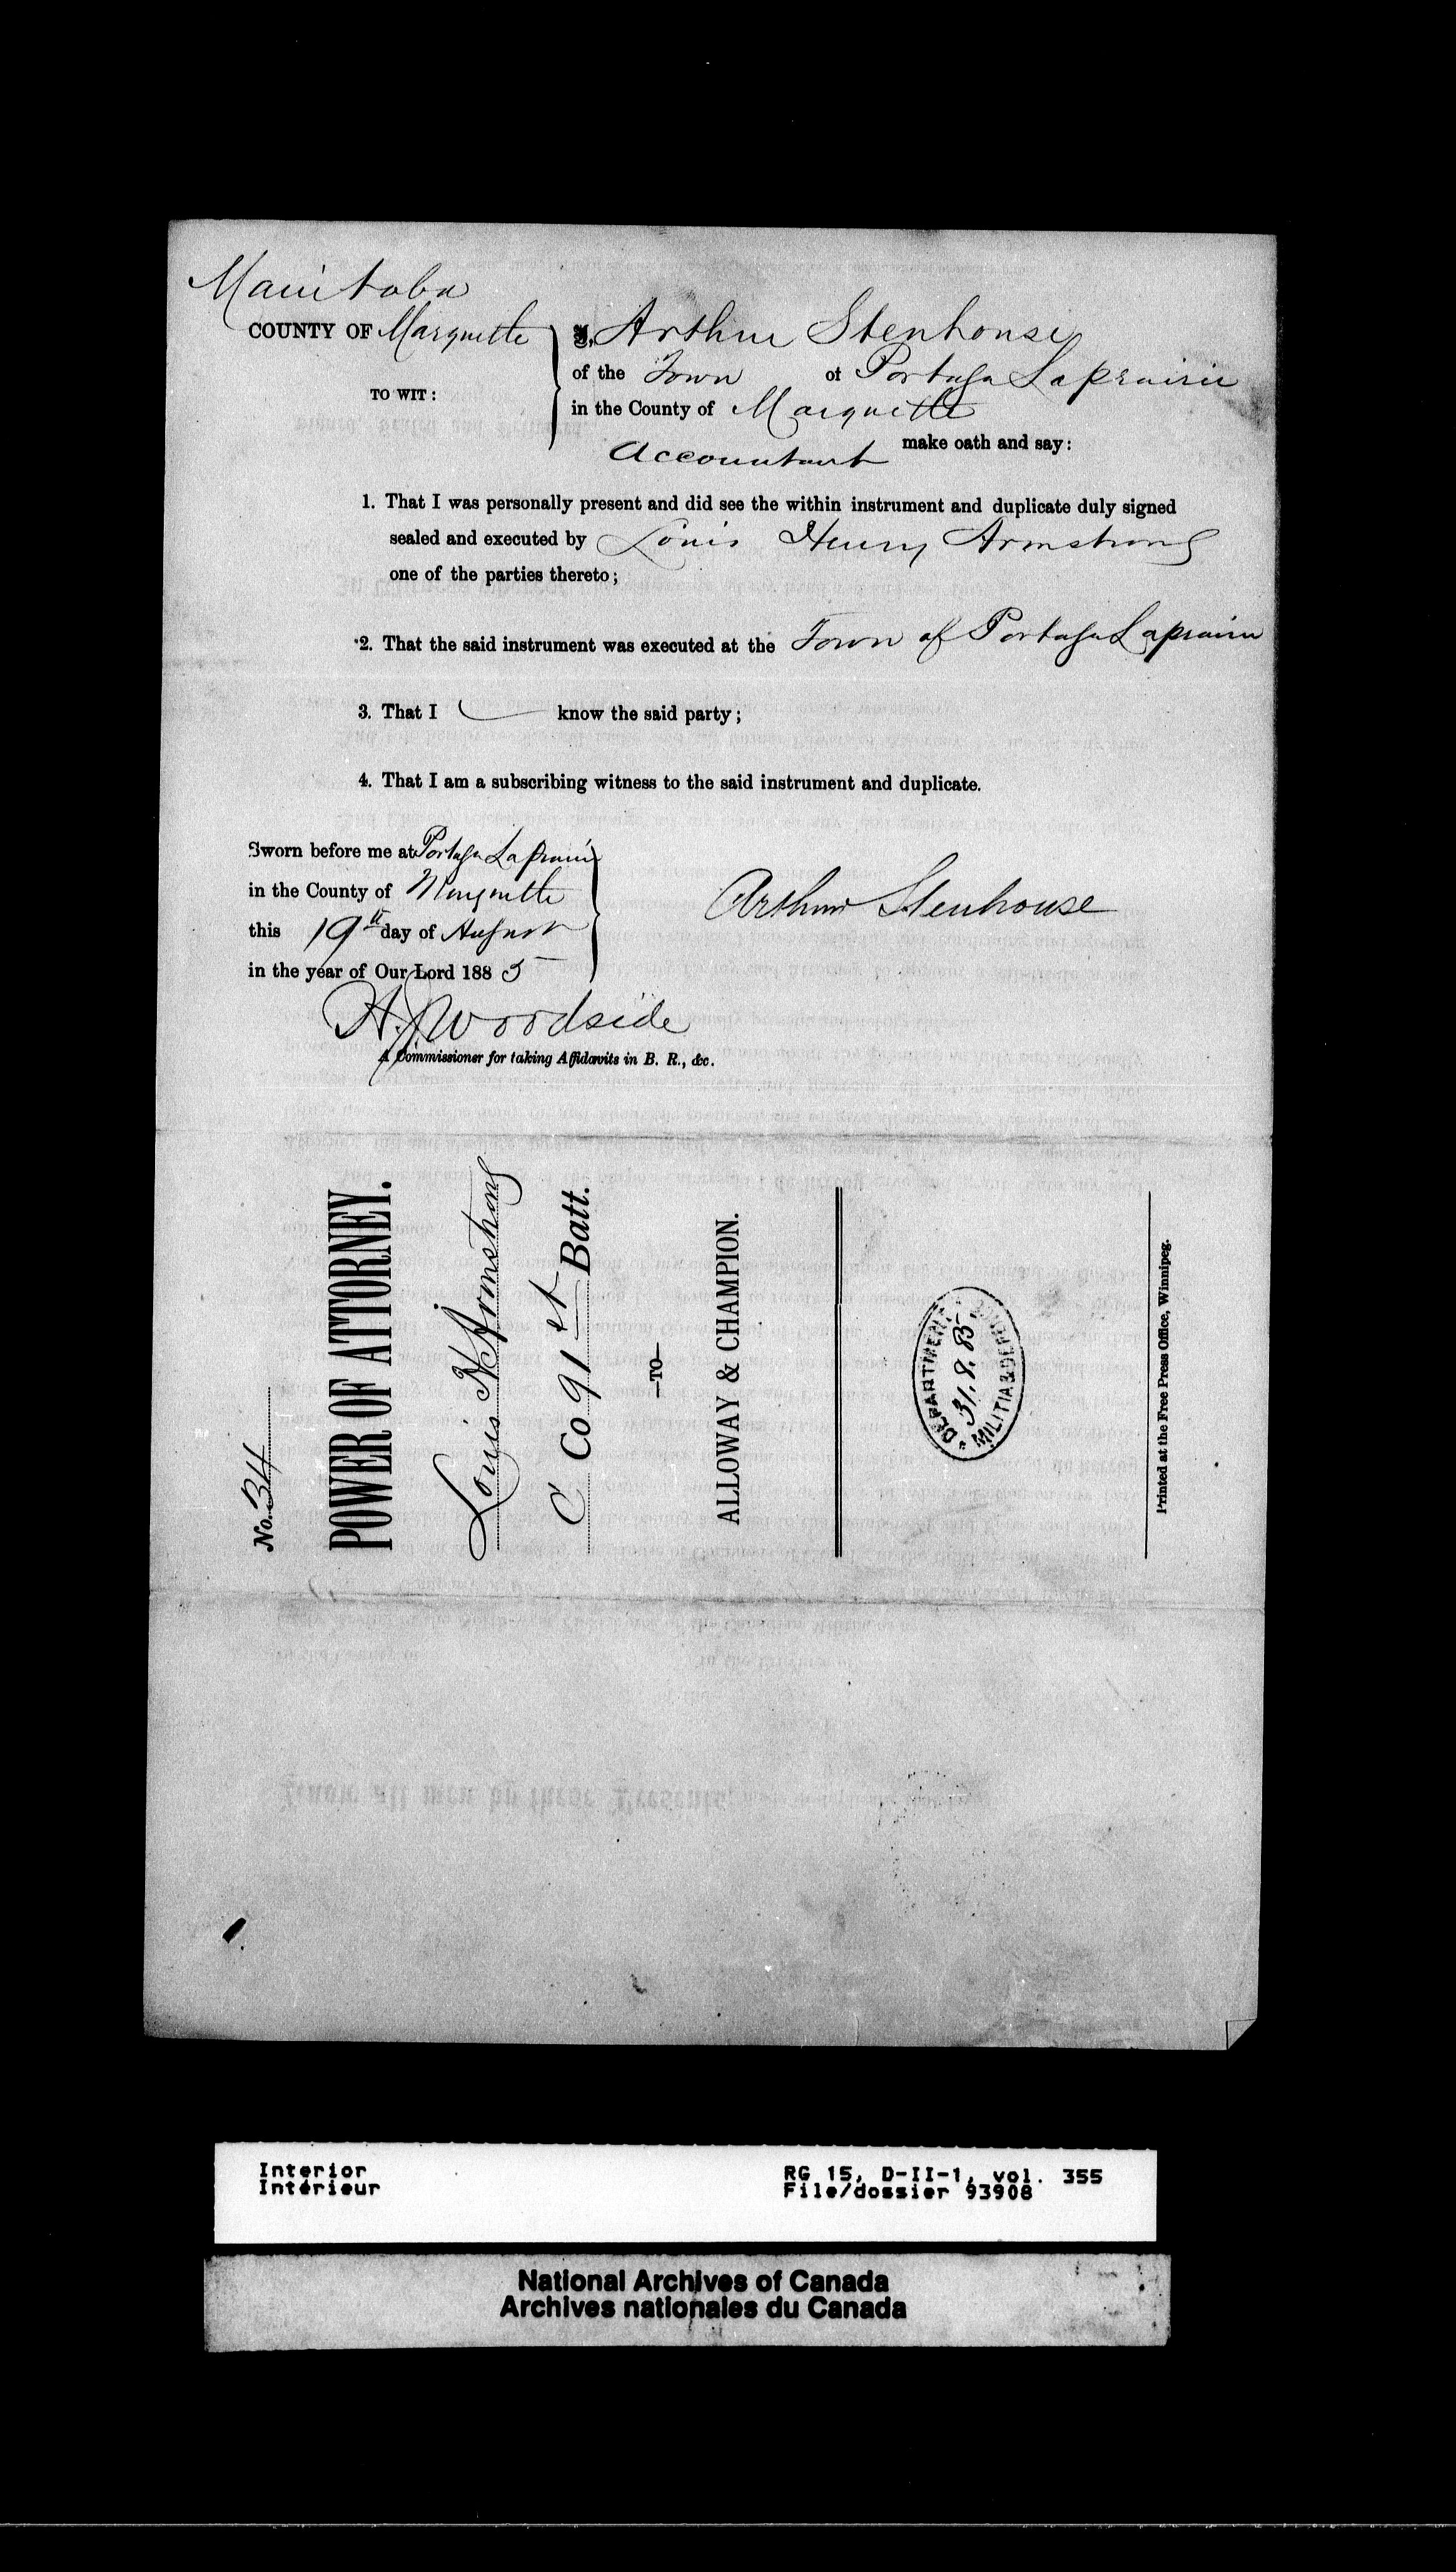 Manitoba
COUNTY OF Marquette
TO WIT:
I, Arthur Stenhouse
of the Town of Portage Laprairie
in the County of Marquette
Accountant make oath and say:
1. That I was personally present and did see the within instrument and duplicate duly signed
sealed and executed by Louis Henry Armstrong
one of the parties thereto;
2. That the said instrument was executed at the Town of Portage Laprairie
3. That I know the said party;
4. That I am a subscribing witness to the said instrument and duplicate.
Sworn before me at Portage Laprairie
in the County of Marquette
this 19th day of August
in the year of Our Lord 1885
Arthur Stenhouse
H. J. Woodside
A Commissioner for taking Affidavits in B. R., &c.
No. 34
POWER OF ATTORNEY.
Louis H Armstrong
C Co 91st Batt.
—TO—
ALLOWAY & CHAMPION.
DEPARTMENT
31.8.85
MILITIA & DEFENCE
Printed at the Free Press Office, Winnipeg.
Interior
Intérieur
RG 15, D-II-1, vol. 355
File/dossier 93908
National Archives of Canada
Archives nationales du Canada